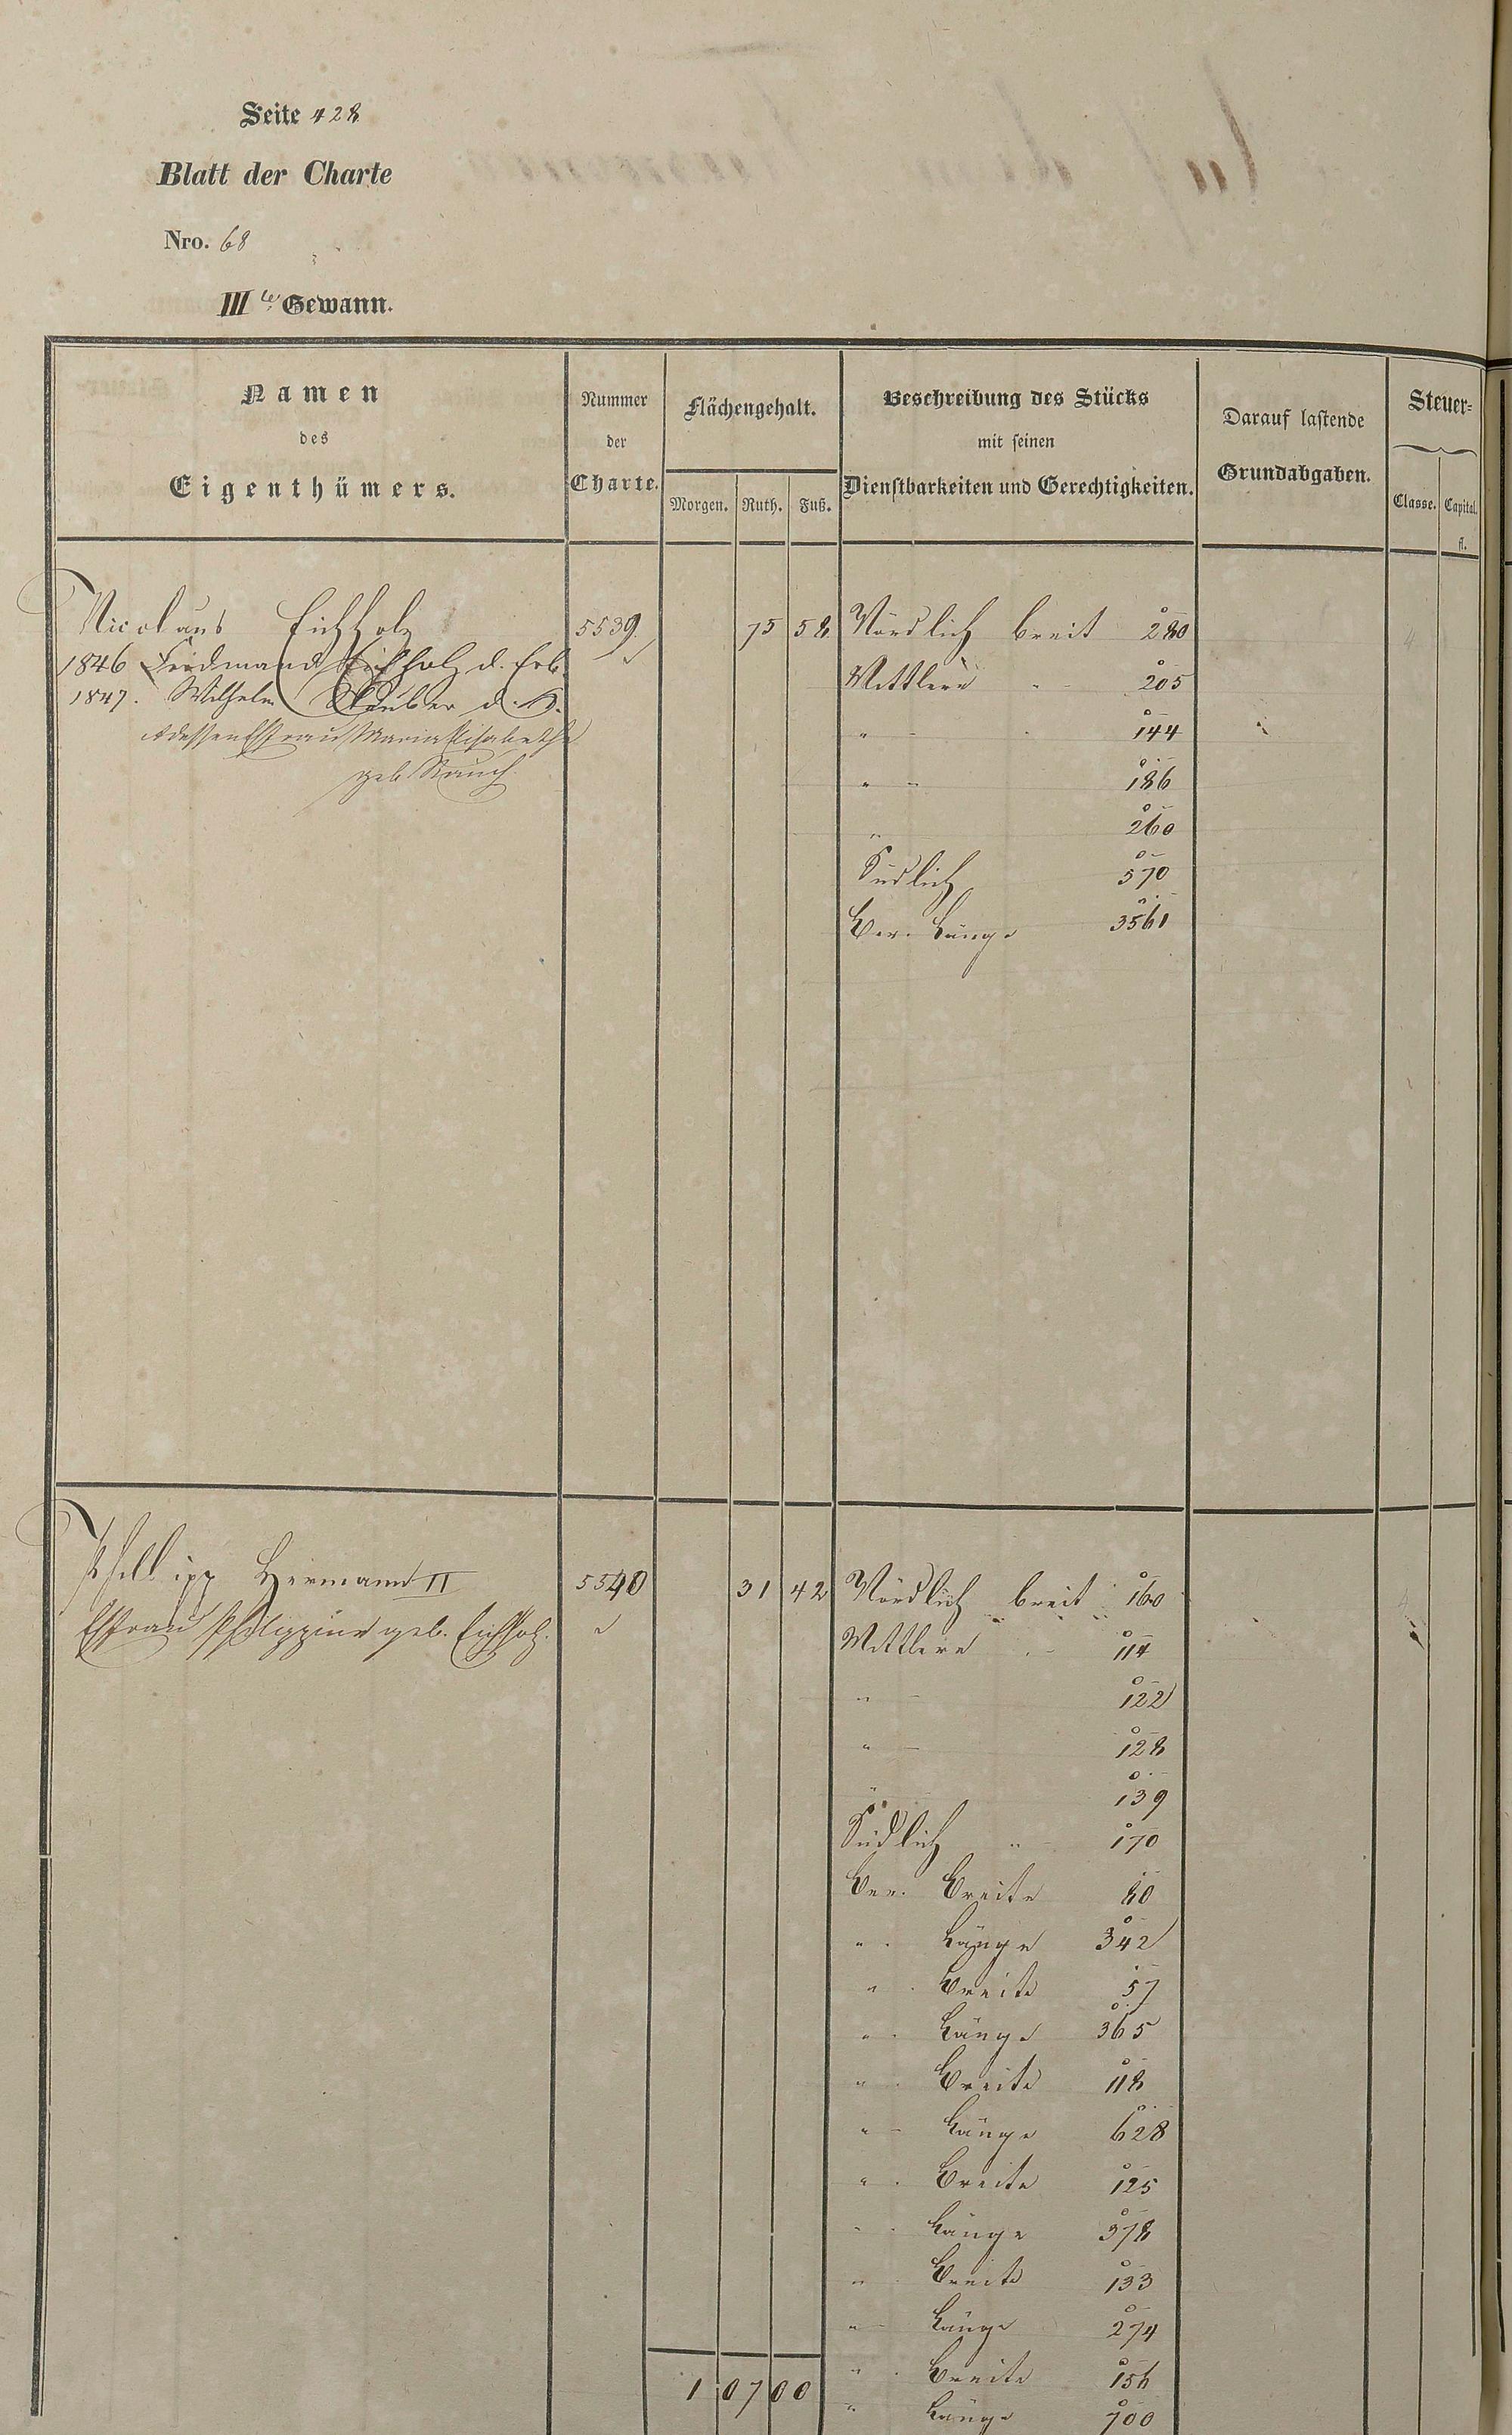 Seite 428
Blatt der Charte
Nro. 68
III te Gewann.
Namen
des
Eigenthümers.
Nummer
der
Charte.
Flächengehalt.
Morgen. Ruth. Fuß.
Beschreibung des Stücks
mit seinen
Dienstbarkeiten und Gerechtigkeiten.
Darauf lastende
Grundabgaben.
Steuer=
Classe. Capital.
fl.
Nicolaus Eichholz 5539. 75 58 Nördlich breit 280
1846 Ferdinand Eichholz d. Erb.
1847. Wilhelm d.
Mittlere " 205
dessen Ehefrau Maria Elisabetha
" 144
geb. Rauch
" 186
" 260
Südlich 570
Ver. Länge 3561
Phillipp Hermann II 5540 31 42 Nördlich breit 160
Ehefrau Philippine geb. Eichholz.
Mittlere " 114
" 122
" 128
" 139
Südlich " 170
Ver. Breite 80
" Länge 342
" Breite 57
" Länge 365
" Breite 118
" Länge 628
" Breite 125
" Länge 378
" Breite 133
" Länge 274
" Breite 156
1 07 00
" Länge 700